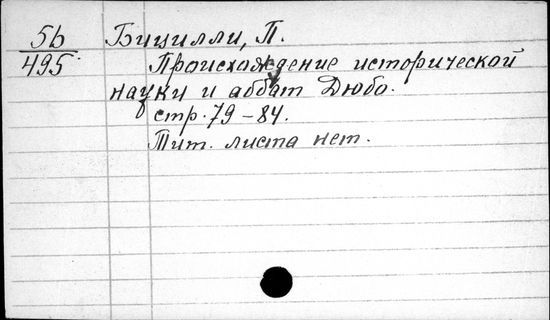 5b
495
Бицилли, П.
Происхождение исторической
науки и аббат Дюбо.
стр. 79-84.
Тит. листа нет.